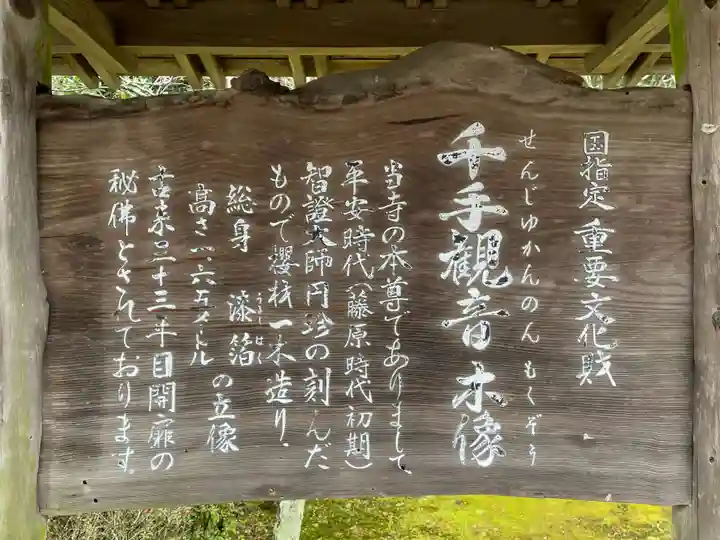 国指定 重要文化財
せんじゆかんのん もくぞう
千手觀音木像
当寺の本尊でありまして
平安時代（藤原時代初期）
智證大師円珍の刻んだ
もので櫻材一木造り．
総身 漆箔
うるし はく
高さ一、六五メートル の立像
古来三十三年目開扉の
秘佛とされております